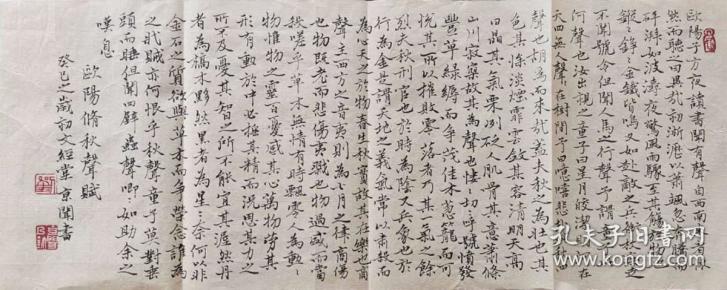 歐陽子方夜讀書聞有聲自西南來者悚
然而聽之曰異哉初淅瀝以蕭颯忽奔騰而
砰湃如波濤夜驚風雨驟至其觸於物
鏦鏦錚錚金鐵皆鳴又如赴敵之兵
不聞號令但聞人馬之行聲予謂
何聲也汝出視之童子曰星月皎潔在
天四無人聲在樹間予曰噫嘻悲
聲也胡為而來哉蓋夫秋之為狀也其
色其慘淡煙霏雲斂其容清明天高
日晶其氣慄冽砭人肌骨其意蕭條
山川寂寥故其為聲也悽切呼號憤發
豐草綠縟而爭茂佳木蔥蘢而可
悅其所以摧敗零落者乃其氣之餘
烈夫秋刑官也於時為陰又兵象也於
行為金是謂天地之義氣常以肅殺而
為心天之於物春生秋實故其在樂也商
聲主西方之音夷則為七月之律商傷
也物既老而悲傷夷戮也物過盛而當
殺嗟乎草木無情有時飄零人為動
物惟物之靈百憂感其心萬物勞其
形有動於中必搖其精而況思其力之
所不及憂其智之所不能宜其渥然丹
者為槁木黟然黑者為星星奈何以非
金石之質欲與草木而爭榮念誰為
之戕賊亦何恨乎秋聲童子莫對垂
頭而睡但聞四壁蟲聲唧唧如助余之
嘆息
歐陽脩秋聲賦
癸巳之歲初文經堂京聞書